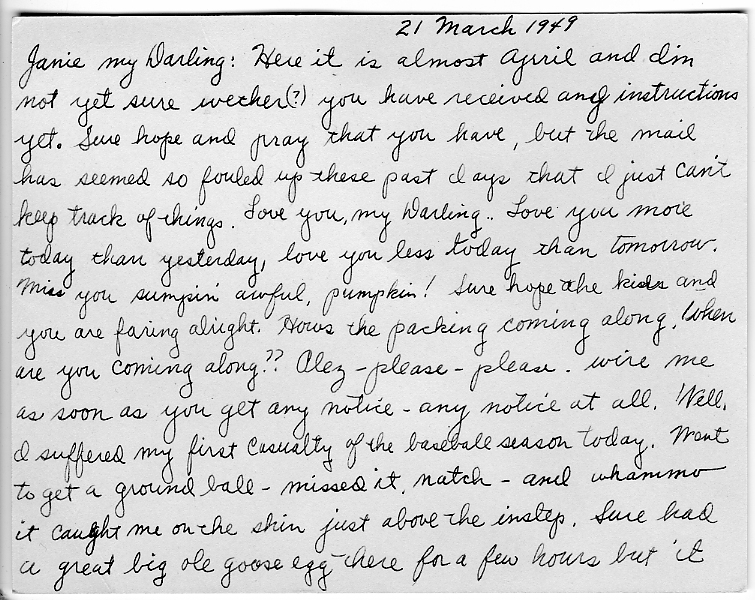 21 March 1949
Janie my Darling: Here it is almost April and I'm
not yet sure wether(?) you have received any instructions
yet. Sure hope and pray that you have, but the mail
has seemed so fouled up these past days that I just can't
keep track of things. Love you, my Darling.. Love you more
today than yesterday, love you less today than tomorrow.
Miss you sumpin' awful, pumpkin! Sure hope the kids and
you are faring alright. Hows the packing coming along. When
are you coming along?? Plez - please - please - wire me
as soon as you get any notice - any notice at all. Well,
I suffered my first casualty of the baseball season today. Went
to get a ground ball - missed it, natch - and whammo
it caught me on the shin just above the instep. Sure had
a great big ole goose egg there for a few hours but it